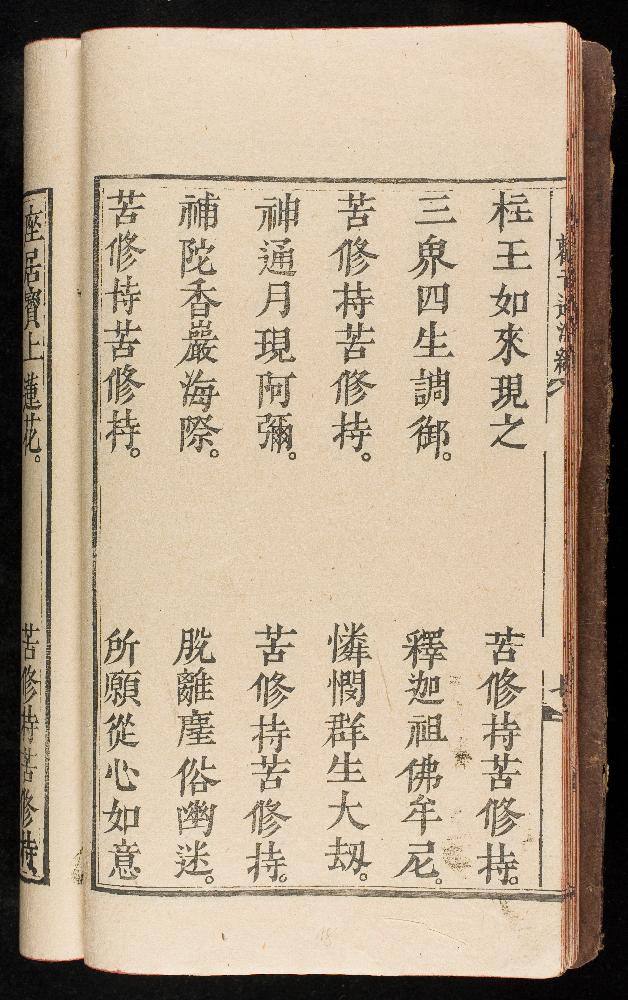 枉王如來現之　苦修持苦修持。
三界四生調御。　釋迦祖佛牟尼。
苦修持苦修持。　憐憫群生大刼。
神通月現阿彌。　苦修持苦修持。
補陀香巖海際。　脫離塵俗幽迷。
苦修持苦修持。　所願從心如意
座居寶上蓮花。　苦修持苦修持